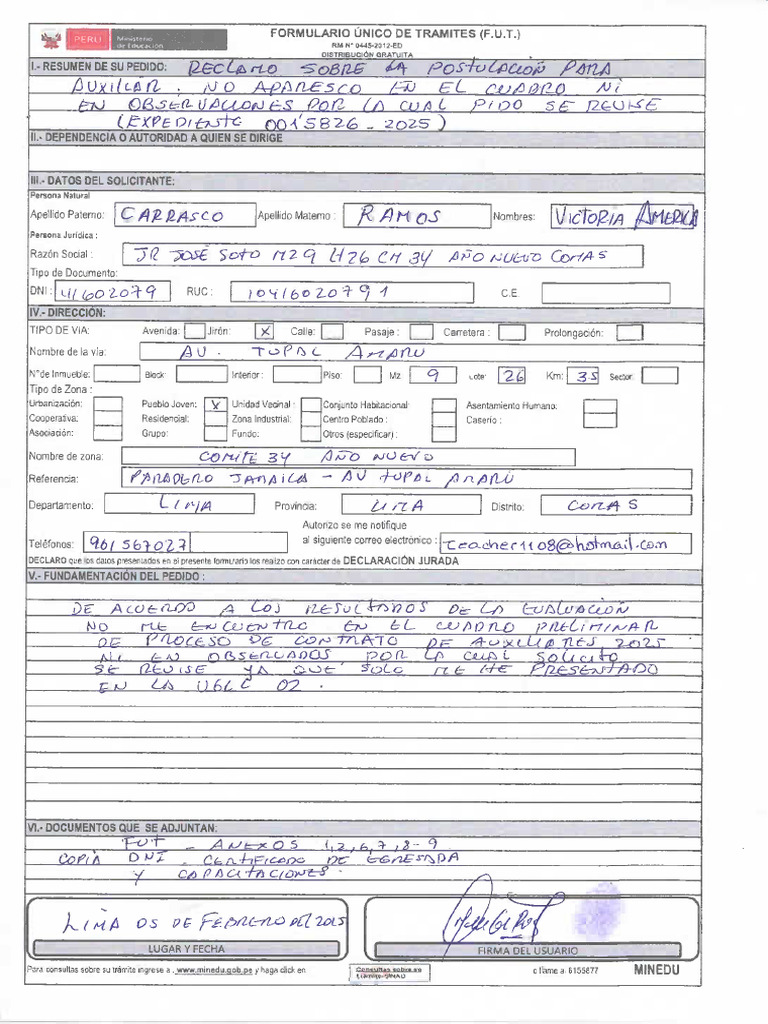 PERÚ Ministerio de Educación
FORMULARIO ÚNICO DE TRAMITES (F.U.T.)
RM N° 0445-2012-ED
DISTRIBUCIÓN GRATUITA
I.- RESUMEN DE SU PEDIDO: RECLAMO SOBRE LA POSTULACIÓN PARA
AUXILIAR, NO APARESCO EN EL CUADRO NI
EN OBSERVACIONES POR LA CUAL PIDO SE REVISE
(EXPEDIENTE 0015826-2025)
II.- DEPENDENCIA O AUTORIDAD A QUIEN SE DIRIGE
III.- DATOS DEL SOLICITANTE:
Persona Natural
Apellido Paterno: CARRASCO Apellido Materno: RAMOS Nombres: VICTORIA AMERICA
Persona Jurídica :
Razón Social : JR JOSÉ SOTO MZ 9 LT 26 CM 34 AÑO NUEVO COMAS
Tipo de Documento:
DNI : 41602079 RUC : 10416020791 C.E.
IV.- DIRECCIÓN:
TIPO DE VIA: Avenida: Jirón: X Calle: Pasaje : Carretera : Prolongación:
Nombre de la vía: AV. TUPAC AMARU
N° de Inmueble: Block: Interior : Piso: Mz 9 Lote: 26 Km: 35 Sector:
Tipo de Zona :
Urbanización: Pueblo Joven: X Unidad Vecinal : Conjunto Habitacional: Asentamiento Humano:
Cooperativa: Residencial: Zona Industrial: Centro Poblado : Caserio :
Asociación: Grupo: Fundo: Otros (especificar) :
Nombre de zona: COMITE 34 AÑO NUEVO
Referencia: PARADERO JAMAICA - AV TUPAC AMARU
Departamento: LIMA Provincia: LIMA Distrito: COMAS
Autorizo se me notifique
Teléfonos: 961567027 al siguiente correo electrónico : Teacher1108@hotmail.com
DECLARO que los datos presentados en el presente formulario los realizo con carácter de DECLARACIÓN JURADA
V.- FUNDAMENTACIÓN DEL PEDIDO :
DE ACUERDO A LOS RESULTADOS DE LA EVALUACIÓN
NO ME ENCUENTRO EN EL CUADRO PRELIMINAR
DE PROCESO DE CONTRATO DE AUXILIARES, 2025
NI EN OBSERVADOS POR LA CUAL SOLICITO
SE REVISE YA QUE SOLO ME HE PRESENTADO
EN LA UGEL 02.
VI.- DOCUMENTOS QUE SE ADJUNTAN:
FUT - ANEXOS 1,2,6,7,8-9
COPIA DNI - CERTIFICADO DE EGRESADA
Y CAPACITACIONES.
LIMA 05 DE FEBRERO DEL 2025
LUGAR Y FECHA
FIRMA DEL USUARIO
Para consultas sobre su trámite ingrese a : www.minedu.gob.pe y haga click en Consultas sobre su trámite-SINAD o llame a: 6155877 MINEDU